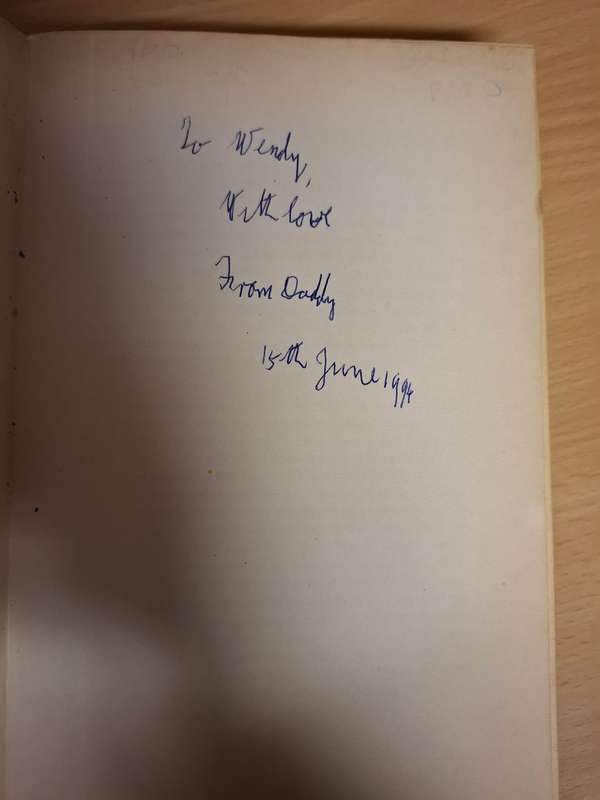 To Wendy,
With love
From Daddy
15th June 1994